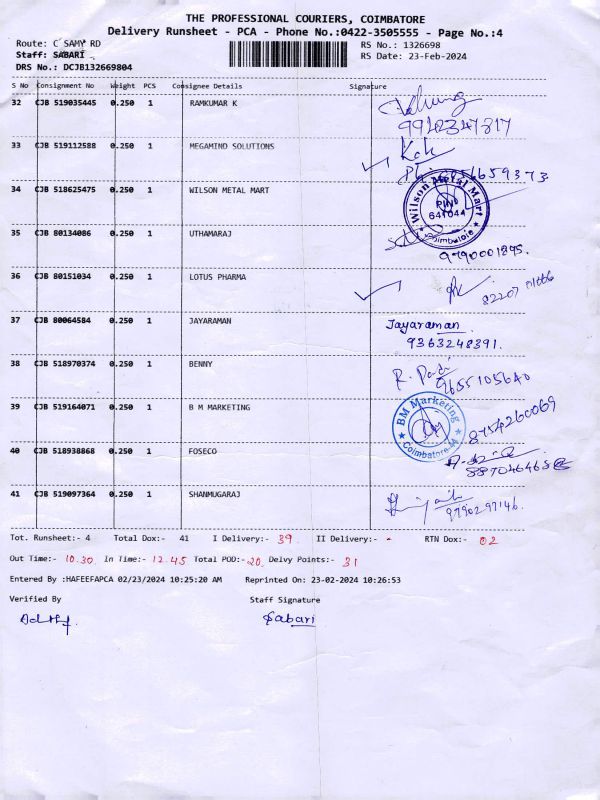 THE PROFESSIONAL COURIERS, COIMBATORE
Delivery Runsheet - PCA - Phone No.:0422-3505555 - Page No.:4
Route: C SAMY RD RS No.: 1326698
Staff: SABARI RS Date: 23-Feb-2024
DRS No.: DCJB132669804
S No Consignment No Weight PCS Consignee Details Signature
32 CJB 519035445 0.250 1 RAMKUMAR K
33 CJB 519112588 0.250 1 MEGAMIND SOLUTIONS
34 CJB 518625475 0.250 1 WILSON METAL MART
Wilson Metal Mart
PIN
641044
Coimbatore
35 CJB 80134086 0.250 1 UTHAMARAJ
9790001895.
36 CJB 80151034 0.250 1 LOTUS PHARMA
37 CJB 80064584 0.250 1 JAYARAMAN Jayaraman
9363248391.
38 CJB 518970374 0.250 1 BENNY
9655105640
39 CJB 519164071 0.250 1 B M MARKETING
BM Marketing
Coimbatore-44
8754260069
40 CJB 518938868 0.250 1 FOSECO
41 CJB 519097364 0.250 1 SHANMUGARAJ
9790297146.
Tot. Runsheet:- 4 Total Dox:- 41 I Delivery:- 39 II Delivery:- - RTN Dox:- 02
Out Time:- 10.30 In Time:- 12.45 Total POD:- 20 Delvy Points:- 31
Entered By :HAFEEFAPCA 02/23/2024 10:25:20 AM Reprinted On: 23-02-2024 10:26:53
Verified By Staff Signature
Sabari